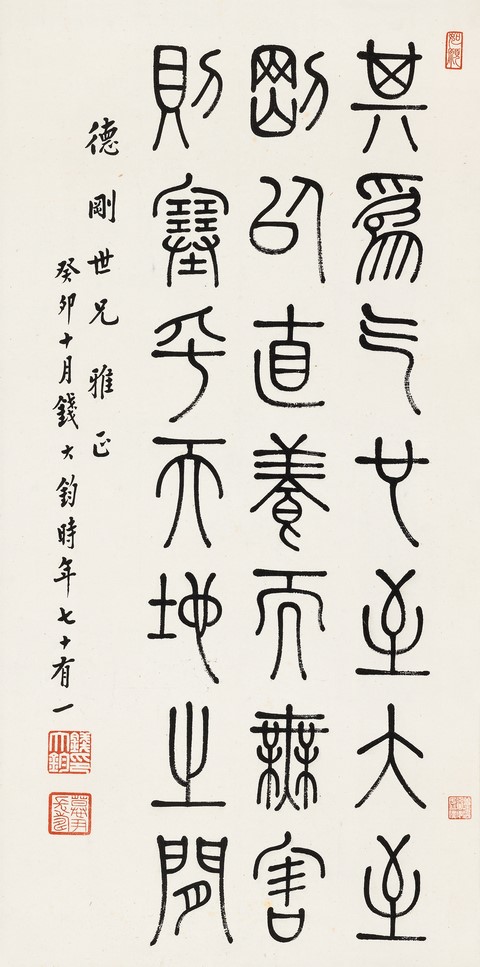 其為气也至大至
剛以直養而無害
則塞乎天地之閒
德剛世兄雅正
癸卯十月錢大鈞時年七十有一
錢大鈞印